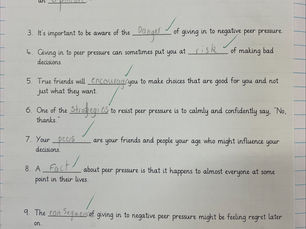 an
3. It's important to be aware of the Danger of giving in to negative peer pressure.
4. Giving in to peer pressure can sometimes put you at risk of making bad
decisions.
5. True friends will encourage you to make choices that are good for you and not
just what they want.
6. One of the Strategies to resist peer pressure is to calmly and confidently say, "No,
thanks."
7. Your peers are your friends and people your age who might influence your
decisions.
8. A Fact about peer pressure is that it happens to almost everyone at some
point in their lives.
9. The consequence of giving in to negative peer pressure might be feeling regret later
on.